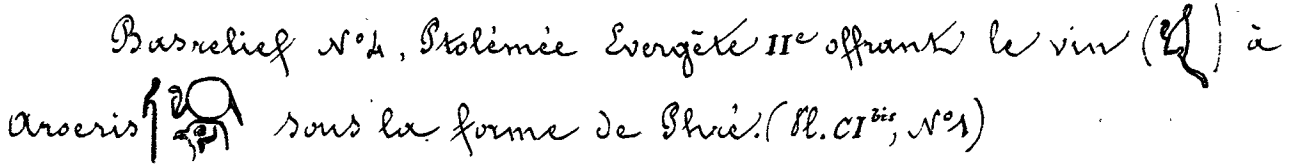 Basrelief N°4, Ptolémée Evergète IIe offrant le vin ( ) à
Aroeris sous la forme de Phré. (Pl. CI bis, N°1)